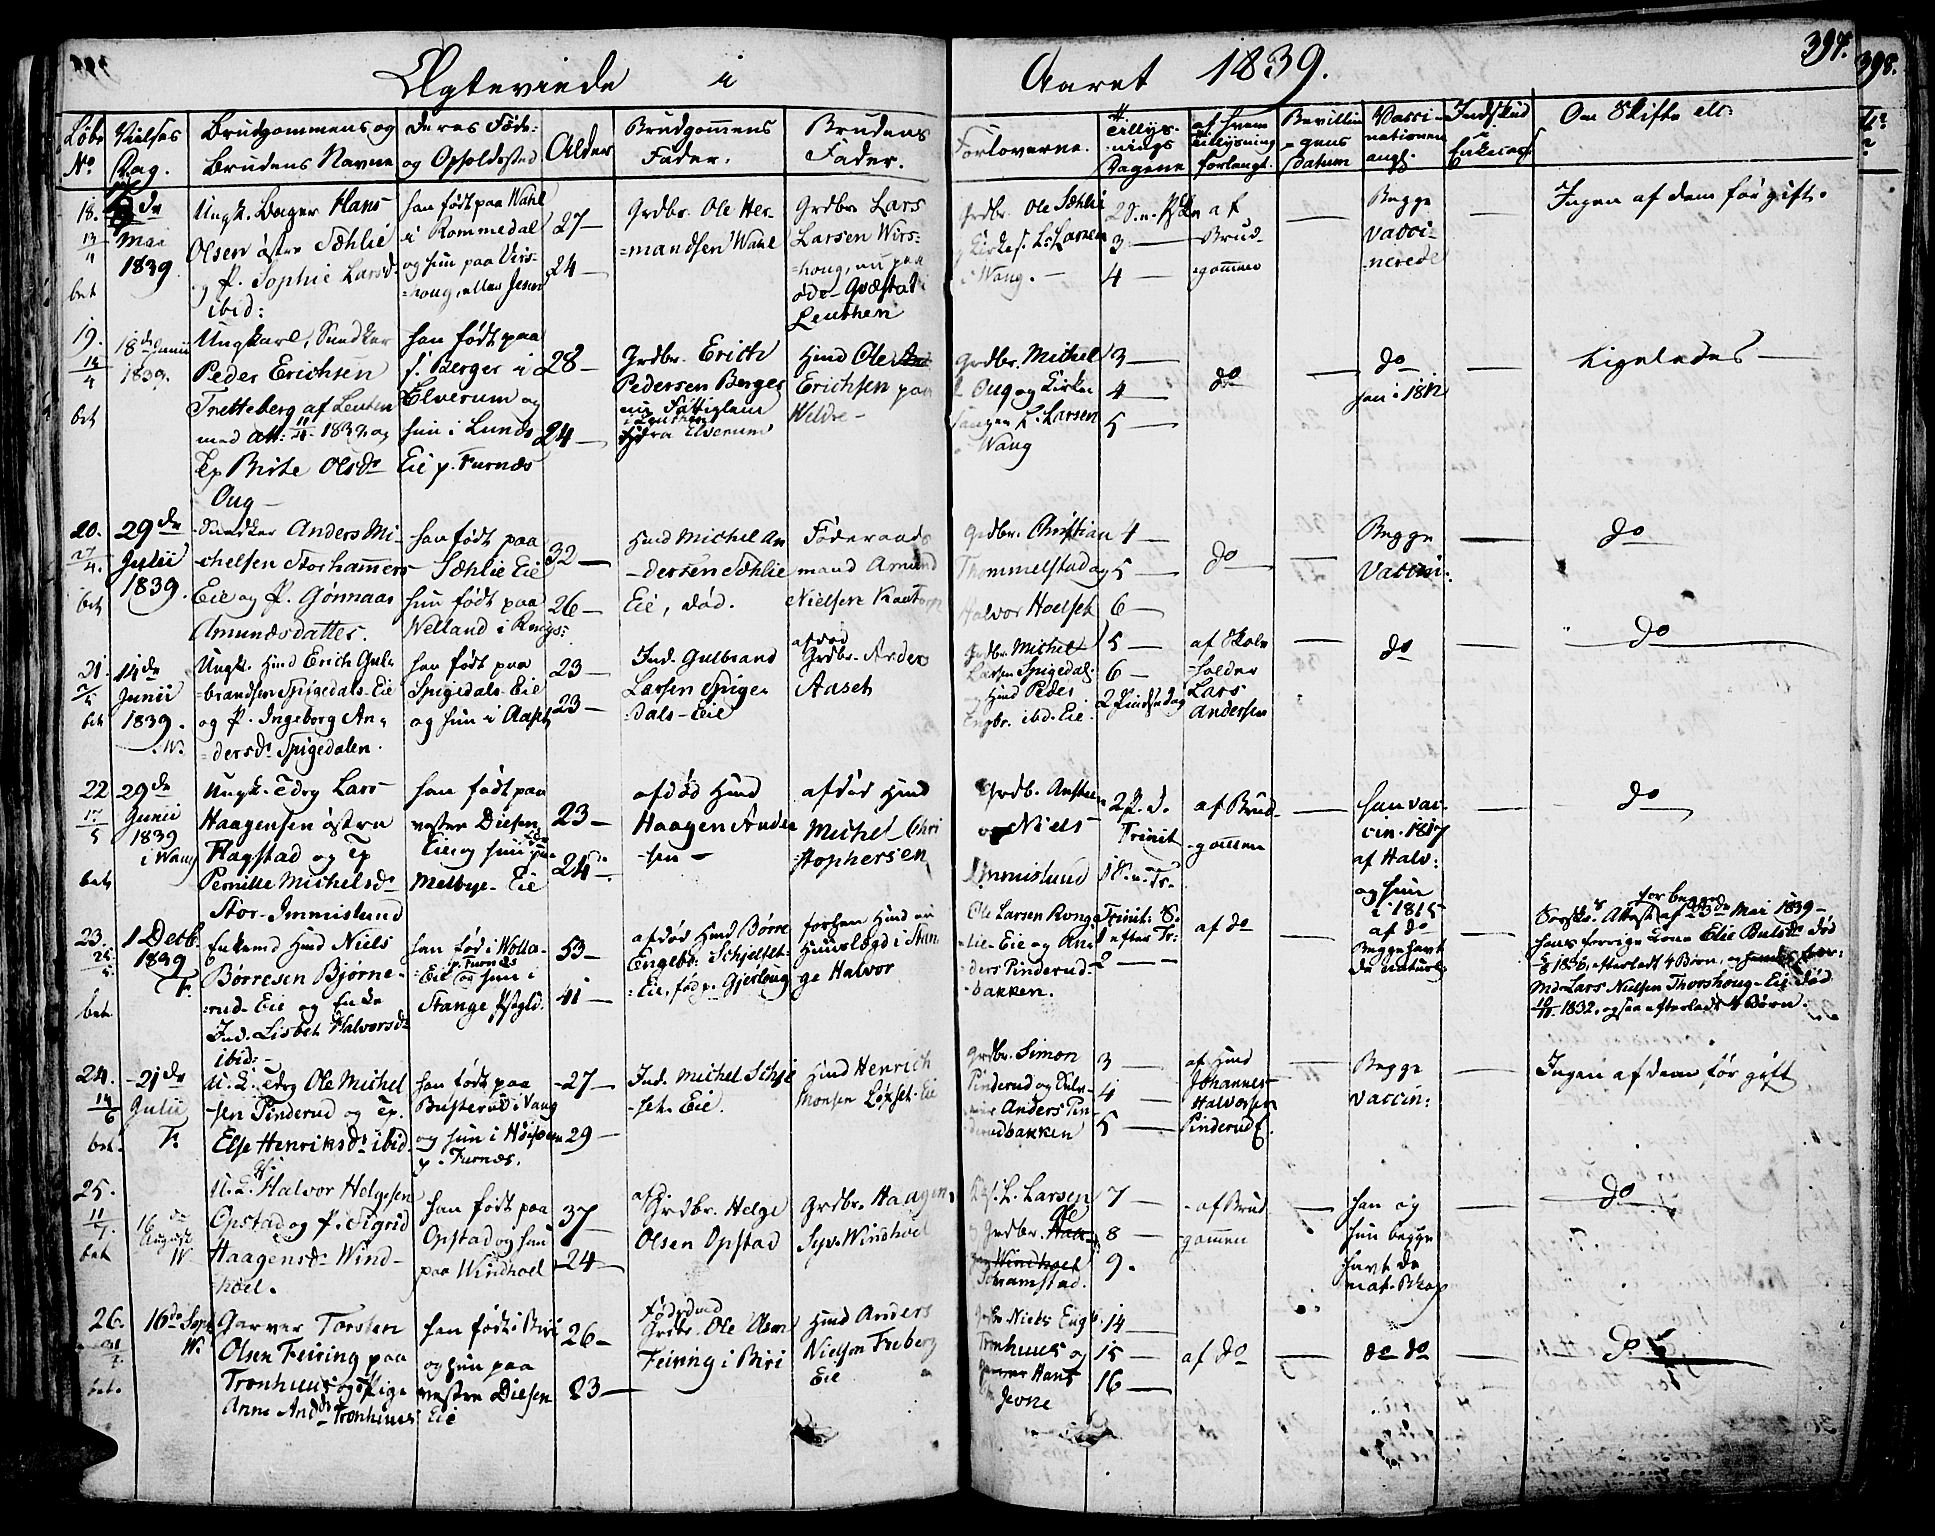 Ægteviede i Aaret 1839.
397.
398.
Løbe No
Vielses Dag.
Brudgommens og Brudens Navne
Deres Føde- og Opholdssted
Alder
Brudgommens Fader.
Brudens Fader.
Forloverne.
Tillysnings Dagene
af hvem Tillysning forlangt.
Bevillingens Datum
Vaccinationen angl.
Indskud Enkecass
Om Skifte etc:
18.
13/4
bet
Mai
1839.
Ungk. Bager Hans
Olsen østre Sæhlie
og P. Sophie Larsd.
ibid:
han født paa Wahl
i Rommedal
og hun paa Virs-
=houg, eller Jesnes
27
24
Grdbr. Ole Her-
=mandsen Wahl
Grdbr. Lars
Larsen Wirs=
=houg, nu paa
øde-Græstad i
Leuthen
Grdbr. Ole Sæhlie
og Kirkes. L. Larsen
i Wang.
2 S. e. Pske
3
4
af
Brud-
gommen
Begge
vacci-
nerede
Ingen af dem før gift.
19.
14/4
bet
18de Junii
1839.
Ungkarl, Snedker
Peder Erichsen
Tretteberg af Leuten
med Att: 1839 og
Ep Birte Olsdr
Oug
han født paa
s. Berger i
Elverum og
hun i Lunds
Eie p. Furnæs
28
24
Grdbr. Erich
Pedersen Berger
nu Fattiglem
i Leuthen
fra Elverum
Hmd Ole
Erichsen paa
Weldre
Grdbr. Michel
Oug og Kirke
sanger L. Larsen
Wang
3
4
5
do
do
han i 1812
Ligeledes
20.
27/4.
bet
29de
Julii
1839.
Snedker Anders Mi-
chelsen Storhammers
Eie og P. Gønnaas
Amundsdatter.
han født paa
Sæhlie Eie
hun født paa
Welland i Rings:
32
26
Hmd Michel An
-dersen Sæhlie
Eie, død.
Føderaads
mand Amund
Nielsen Kaatorp
Grdbr. Christian
Thommelstad og
Halvor Hoelset
4
5
6
do
Begge
Vaccin:
do
21.
bet
14de
Junii
1839.
W.
Ungk. Hmd Erich Gul-
=brandsen Spigedals-Eie
og P. Ingeborg An-
=dersdr Spigedalen.
han født paa
Spigedals-Eie
og hun i Aaset
23
23
Ind. Gulbrand
Larsen Spige
dals-Eie
afdød
Grdbr. Anders
Aaset
Grdbr. Michel
Larsen Spigedal
Hmd Peder
Engbr. ibd. Eie
5
6
2 Pindsedag
af Skole
-holder
Lars
Andersen
do
do
22
17/5
bet
29de
Junii
1839
i Wang
Ungk. Tdrg Lars
Haagensen østre
Flagstad og Ep
Pernille Michelsdr
Stor-Immislund
han født paa
vestre Diesen
Eie og hun paa
Melbye-Eie
23
24
afdød Hmd
Haagen Ander
-sen
afdød Hmd
Michel Chri
stophersen
Grdb.
og Niels
Immislund
2 P. d.
Trinit
1 S. e. Tr.
af Brud-
gommen
han vac-
cin. 1817
af Halv:
og hun
i 1815
af do
do
23.
bet
1 Decb.
1839
F.
Enkemd Hmd Niels
Børresen Bjørne-
rud-Eie og Enke
Ind. Lisbet Halvorsdr
ibid:
han fød i Wolla
Eie p. Furnæs og hun i
Stange Præstgld.
53
41
afdød Hmd Børre
Engebr. Schjelset-
=Eie, fød p. Gjerloug
forhen Hmd nu
Huuslægd i Stan
ge Halvor
Ole Larsen Ronge
lie-Eie og An-
ders Pinderud-
bakken.
Trinit: S.
1 efter Tr:
2
af do
Begge havt
de naturlige
for begge
Sorskr. Attest af 23de Mai 1839
hans forrige Kone Elie Bulsdr død
1836, efterladt 4 Børn, og
Md Lars Nielsen Thorshoug-Eie død
1832, ogsaa efterladt 4 Børn.
24.
14/6
bet.
21de
Julii
F.
U.K. Tdrg Ole Michel
-sen Pinderud og Ep.
Else Henriksdr ibid.
han født paa
Busterud i Vang
og hun i Høisveen
p. Furnæs.
27
29
Ind. Michel Schjel
-set-Eie.
Hmd Henrich
Monsen Løkset-Eie
Grdbr. Simon
Pinderud og
Anders Pin-
derudbakken
3
4
5
af Hmd
Johannes
Halvorsen
Pinderud E.
Begge
vaccin:
Ingen af dem før gift
25.
11/7
bet
16de
August
W
U.K. Halvor Helgesen
Opstad og P. Sigrid
Haagensdr Wind-
hoel.
han født paa
Opstad og hun
paa Windhoel
37
24
afd.
Grdbr. Helge
Olsen Opstad
Grdbr. Haagen
Syv. Windhoel
L. Larsen
og Grdbr. Ole
Windhoel
Johamstad.
7
8
9.
af Brud
gommen
han og
hun begge
havt de
nat. Kop
do
26.
bet.
16de Sept
W.
Garver Torsten
Olsen Feiring paa
Tronhuus og Pige
Anne Andd Tronhuus
han født i Biri
og hun paa
vestre Diesen
Eie
26
23
Føderaad
Grdbr. Ole Olsen
Feiring i Biri
Hmd Anders
Nielsen Freberg
Eie
Grdbr Niels Engh
Tronhuus og
Hans
Jevne
14
15
16
af do
do do
do